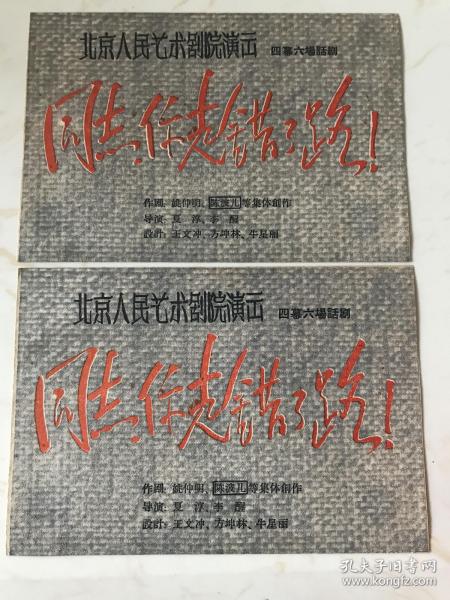 北京人民艺术剧院演出 四幕六場話剧
同志,你走错了路!
作剧:姚仲明、陈波儿等集体創作
导演:夏淳、李醒
設計:王文冲、方坤林、牛星丽
北京人民艺术剧院演出 四幕六場話剧
同志,你走错了路!
作剧:姚仲明、陈波儿等集体創作
导演:夏淳、李醒
設計:王文冲、方坤林、牛星丽
孔夫子旧书网
kongfz.com